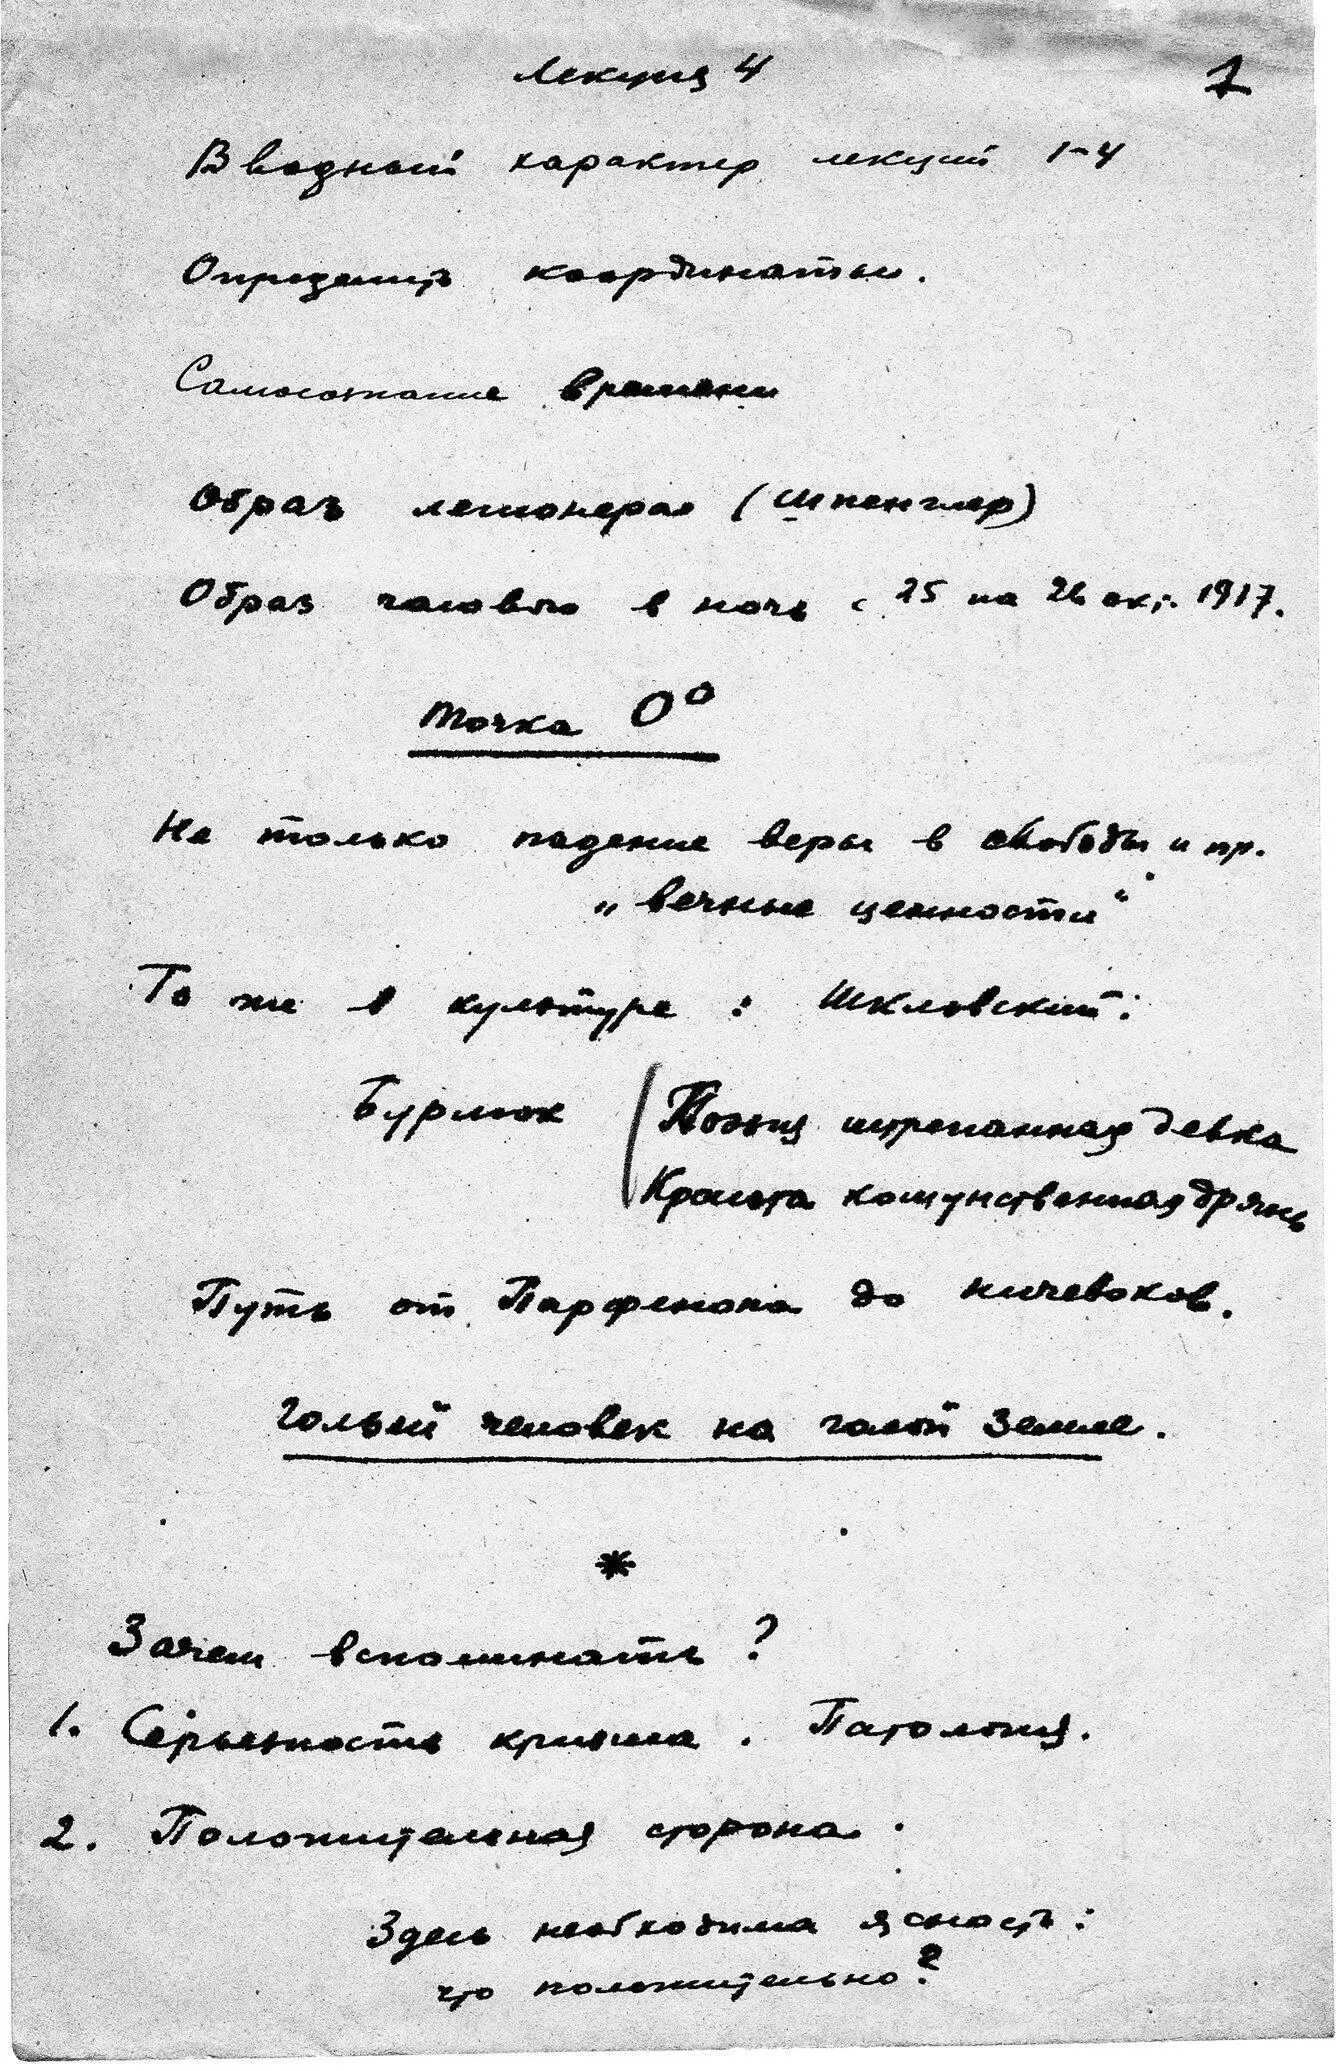 Лекция 4
1
Вводный характер лекций 1-4
Определить координаты.
Самосознание времени
Образ легионера (Шпенглер)
Образ часового в ночь с 25 на 26 окт. 1917.
Точка 0°
Не только падение веры в свободы и пр.
„вечные ценности“
То же в культуре: Шкловский:
Бурлюк Поэзия истрепанная девка
Красота кощунственная дрянь
Путь от Парфенона до ничевоков.
Голый человек на голой земле.
*
Зачем вспоминать?
1. Серьезность кризиса. Патология.
2. Положительная сторона.
Здесь необходима ясность:
что положительно?